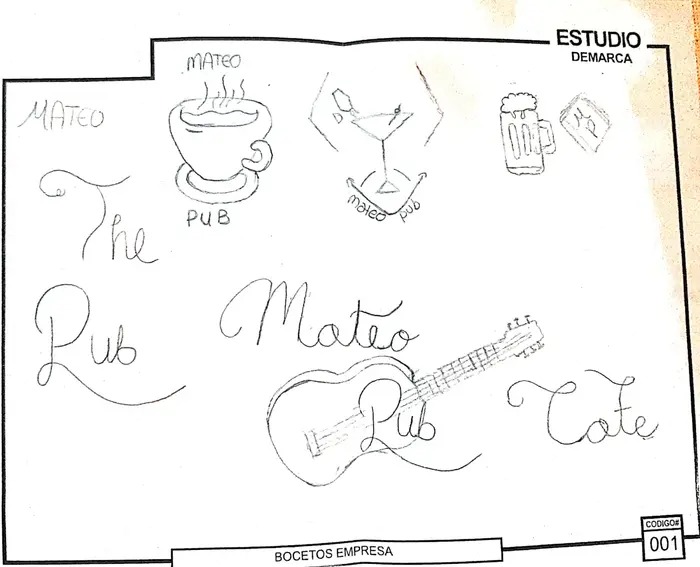 ESTUDIO
DEMARCA
MATEO
MATEO
PUB
mateo pub
M
P
The
Pub
Mateo
Pub
Cafe
BOCETOS EMPRESA
CODIGO#
001